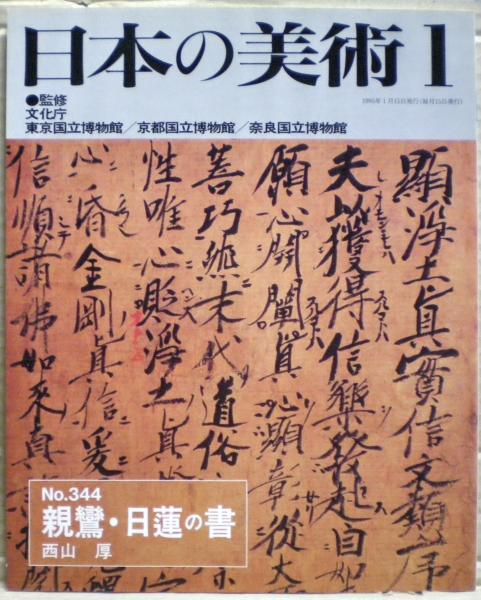 日本の美術 1
●監修
文化庁
東京国立博物館/京都国立博物館/奈良国立博物館
1995年1月15日発行(毎月15日発行)
顯浄土真實信文類序
夫以獲得信樂發起自如
願心開闡真心顯彰從大
善巧然末代道俗
性唯心貶浄土真
心昏金剛真信爰
信順諸佛如来真
No.344
親鸞・日蓮の書
西山 厚